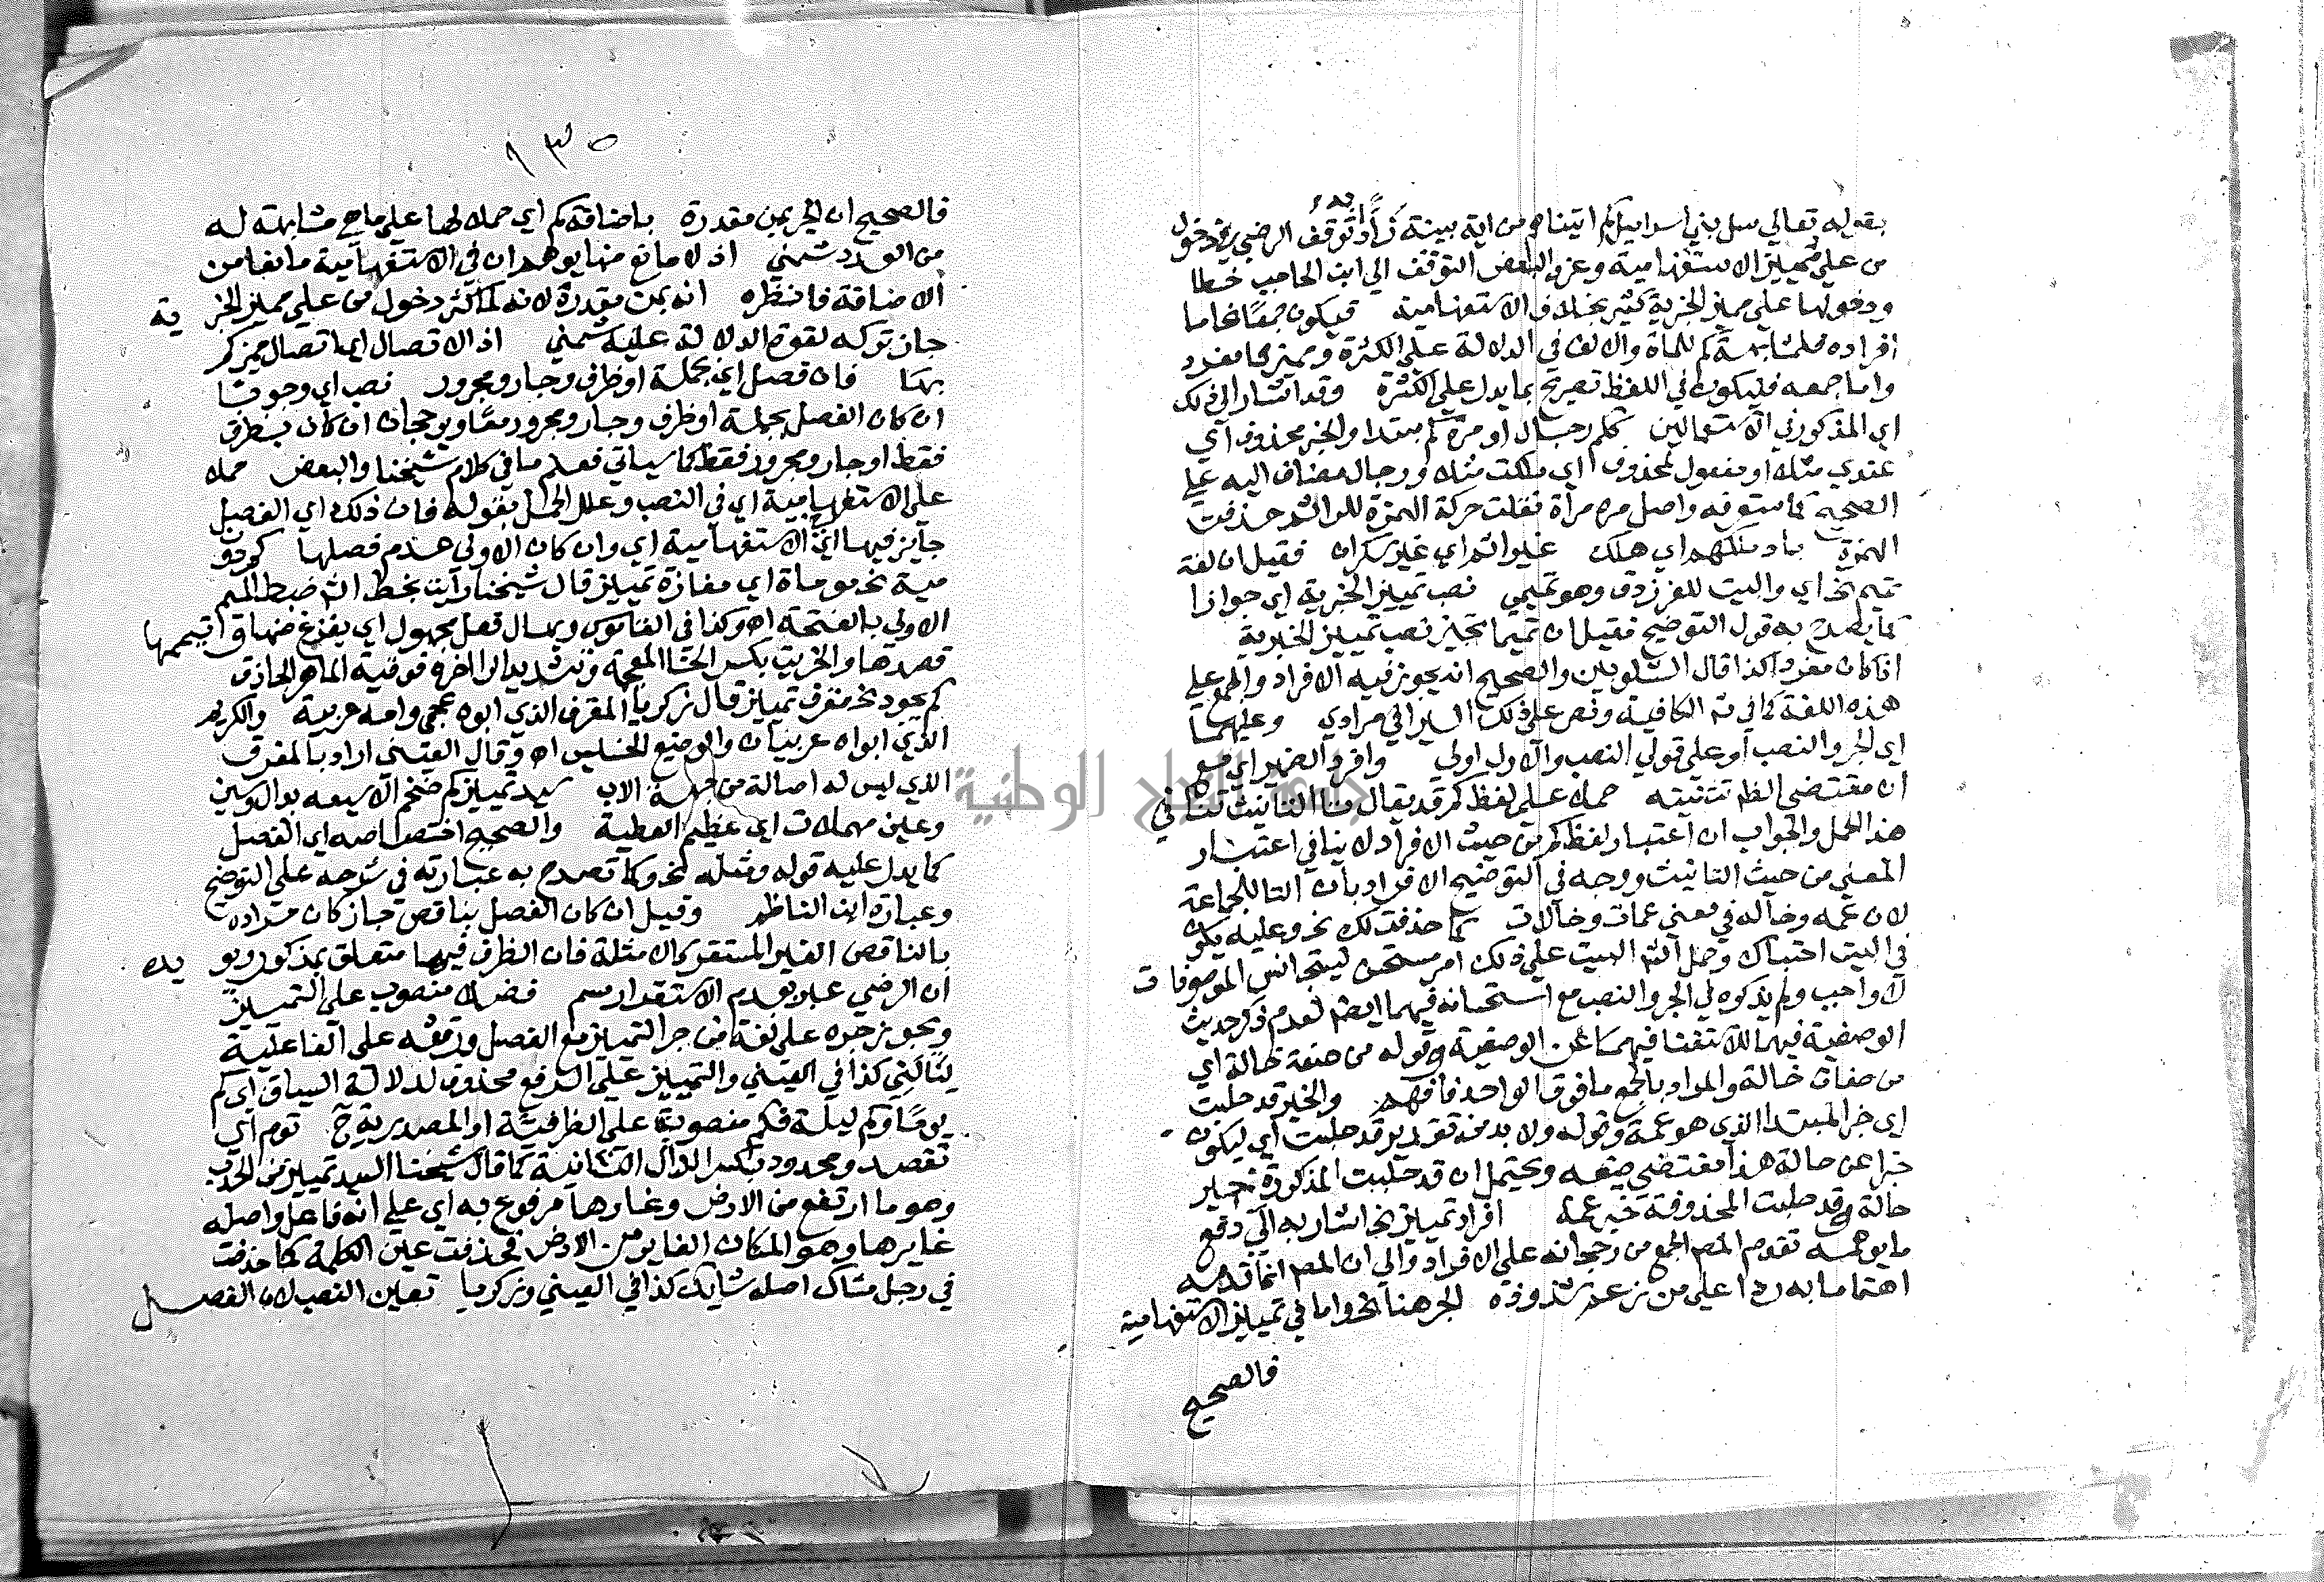 بقوله تعالي سل بني اسراييل كم اتيناهم من اية بينة زاد توقف الرضي في دخول
من علي مميز الاستفهامية وعزو البعض التوقف الي ابن الحاجب خطا
ودخولها علي مميز الخبرية كثير بخلاف الاستفهامية فيكون جمعا
افراده فلمشابهة كم للماة والالف في الدلالة علي الكثرة ومميزهما مفرد
واما جمعه فليكون في اللفظ تصريح بما يدل علي الكثرة وقد اشار الي ذلك
اي المذكور في الاستعمالين ككم رجال او مره كم مبتدا والخبر محذوف اي
عندي مثلا او مفعول لمحذوف اي ملكت مثلا ورجال مضاف اليه علي
الصحيح كما ستعرفه واصل مره مراة نقلت حركة الهمزة للرا ثم حذفت
الهمزة باد ملكهم اي هلك غير اثم اي غير سكران فقيل ان لغة
تميم الخ اي والبيت للفرزدق وهو تميمي نصب تمييز الخبرية اي جوازا
كما يصرح به قول التوضيح فقيل ان تميما تجيز نصب تمييز الخبرية
اذا كان مفردا كذا قال الشلوبين والصحيح انه يجوز فيه الافراد والجمع علي
هذه اللغة كما في شرح الكافية ونص علي ذلك السيرافي مرادي وعليهما
اي الجر والنصب او علي قولي النصب والاول اولي وافرد الضمير اي مع
ان مقتضي الظم تثنيته حملا علي لفظ كم قد يقال تا التانيث تنافي
هذا الحمل والجواب ان اعتبار لفظ كم من حيث الافراد لا ينافي اعتبار
المعني من حيث التانيث ووجه في التوضيح الافراد بان التا للجماعة
لان عمه وخاله في معني عمات وخالات كما حذفت لك نحو وعليه يكون
في البيت احتباك وحمل البيت علي ذلك امر مستحسن ليتجانس الموصوفات
لا واجب ولم يذكره في الجر والنصب مع استحسانه فيهما ايضا لعدم ذكر حديث
الوصفية فيهما للاستغنا فيهما عن الوصفية وقوله من صفة خالة اي
من صفات خالة والمراد بالجمع ما فوق الواحد فافهم والخبر قد حلبت
اي خبر المبتدا الذي هو عمة وقوله ولا بد من تقدير قد حلبت اي ليكون
خبرا عن خالة هذا مقتضي صنيعه ويحتمل ان قد حلبت المذكورة خبر
خالة وقد حلبت المحذوفة خبر عمة افراد تمييز الخ اشار به الي دفع
ما يوهمه تقديم المص الجمع من رجحانه علي الافراد والي ان المص انما قدمه
اهتماما به ردا علي من زعم شذوذه الجر هنا الخ واما في تمييز الاستفهامية
فالصحيح
١٣٥
فالصحيح ان الجر بمن مقدرة باضافة كم اي حملا لها علي ما هي مشابهة له
من العدد شمني اذ لا مانع منها يوهم ان في الاستفهامية مانعا من
الاضافة فانظره انه بمن مقدرة لانه لما كثر دخول من علي مميز الخبرية
جاز تركه لقوة الدلالة عليه شمني اذ الاتصال اي اتصال مميز كم
بها فان فصل اي بجملة او ظرف وجار ومجرور نصب اي وجوبا
ان كان الفصل بجملة او ظرف وجار ومجرور معا وبرجحان ان كان بظرف
فقط او جار ومجرور فقط كما سياتي فعلم ما في كلام شيخنا والبعض حملا
علي الاستفهامية اي في النصب وعلل الحمل بقوله فان ذلك اي الفصل
جايز فيها اي الاستفهامية اي وان كان الاولي عدم فصلها كم دون
مية نحو موماة اي مفازة تمييز قال شيخنا رايت بخط الش ضبط الميم
الاولي بالفتحة اه وكذا في القاموس ويهال فعل مجهول اي يفزع منها وتيممها
قصدها والخريت بكسر الخا المعجمة وتشديد الرا اخره فوقية الماهر الحاذق
كم بجود الخ مقرف تمييز قال زكريا المقرف الذي ابوه عجمي وامه عربية والكريم
الذي ابواه عربيان والوضيع الخسيس اه وقال العيني اراد بالمقرف
الذي ليس له اصالة من جهة الاب سيد تمييز كم ضخم الدسيعه بدال وسين
وعين مهملات اي عظيم العطية والصحيح اختصاصه اي الفصل
كما يدل عليه قوله ومثله نحو وكما تصرح به عبارته في شرحه علي التوضيح
وعبارة ابن الناظم وقيل ان كان الفصل بناقص جاز كان مراده
بالناقص الغير المستقر كالامثلة فان الظرف فيها متعلق بمذكور ويويده
ان الرضي عبر بعدم الاستقرار سم فضلا منصوب علي التمييز
ويجوز جره علي لغة من جر التمييز مع الفصل ورفعه علي الفاعلية
لنالني كذا في العيني والتمييز علي الرفع محذوف لدلالة السياق اي كم
يوما وكم ليلة فكم منصوبة علي الظرفية او المصدرية ح تؤم اي
تقصد ومحدودب بكسر الدال الثانية كما قال شيخنا السيد تمييز من الحدب
وهو ما ارتفع من الارض وغارها مرفوع به اي علي انه فاعل واصله
غايرها وهو المكان الغاير من الارض فحذفت عين الكلمة كما حذفت
في رجل شاك اصله شايك كذا في العيني وزكريا تعين النصب لان الفصل
جامعة النجاح الوطنية